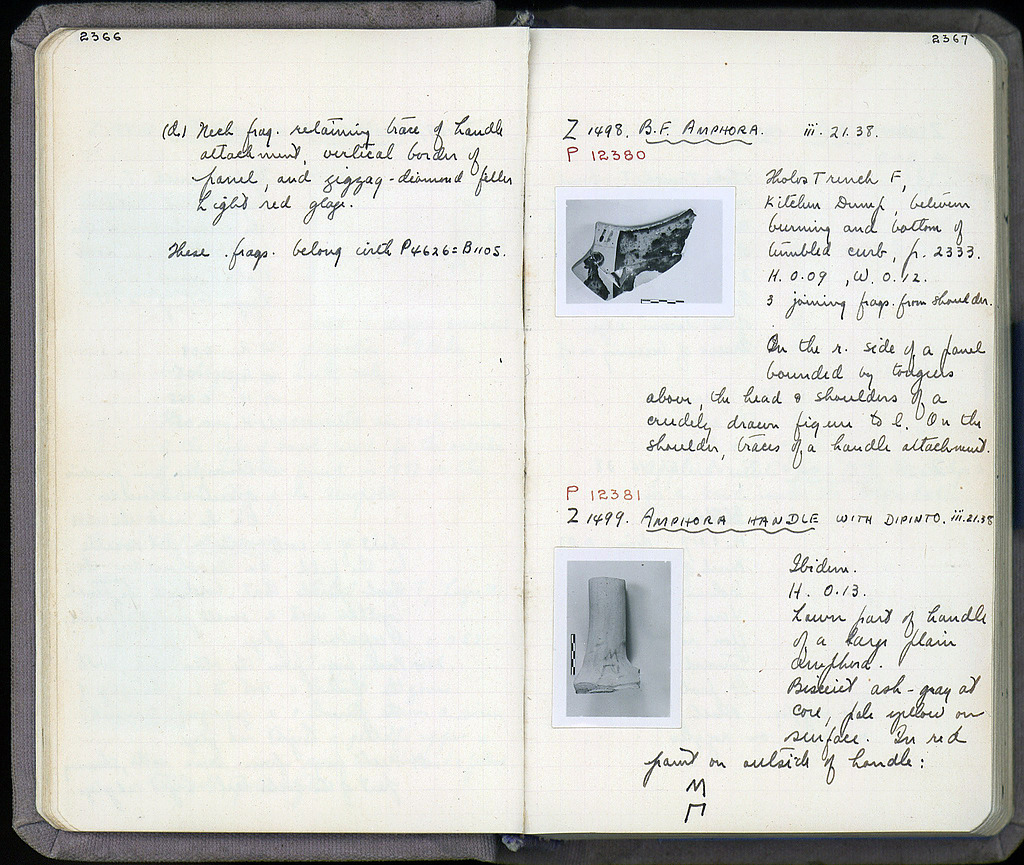 2366
(d.) Neck frag. retaining trace of handle
attachment, vertical border of
panel, and zigzag-diamond filler
Light red glaze.
These frags. belong with P4626=B1105.
2367
Z 1498. B.F. AMPHORA. iii. 21.38.
P 12380
Tholos Trench F,
Kitchen Dump, between
burning and bottom of
tumbled curb, p. 2333.
H. 0.09, W. 0.12.
3 joining frags. from shoulder.
On the r. side of a panel
bounded by tongues
above, the head & shoulders of a
crudely drawn figure to l. On the
shoulder, traces of a handle attachment.
P 12381
Z 1499. AMPHORA HANDLE WITH DIPINTO. iii.21.38
Ibidem.
H. 0.13.
Lower part of handle
of a large plain
amphora.
Biscuit ash-gray at
core, pale yellow on
surface. In red
paint on outside of handle:
M
Π